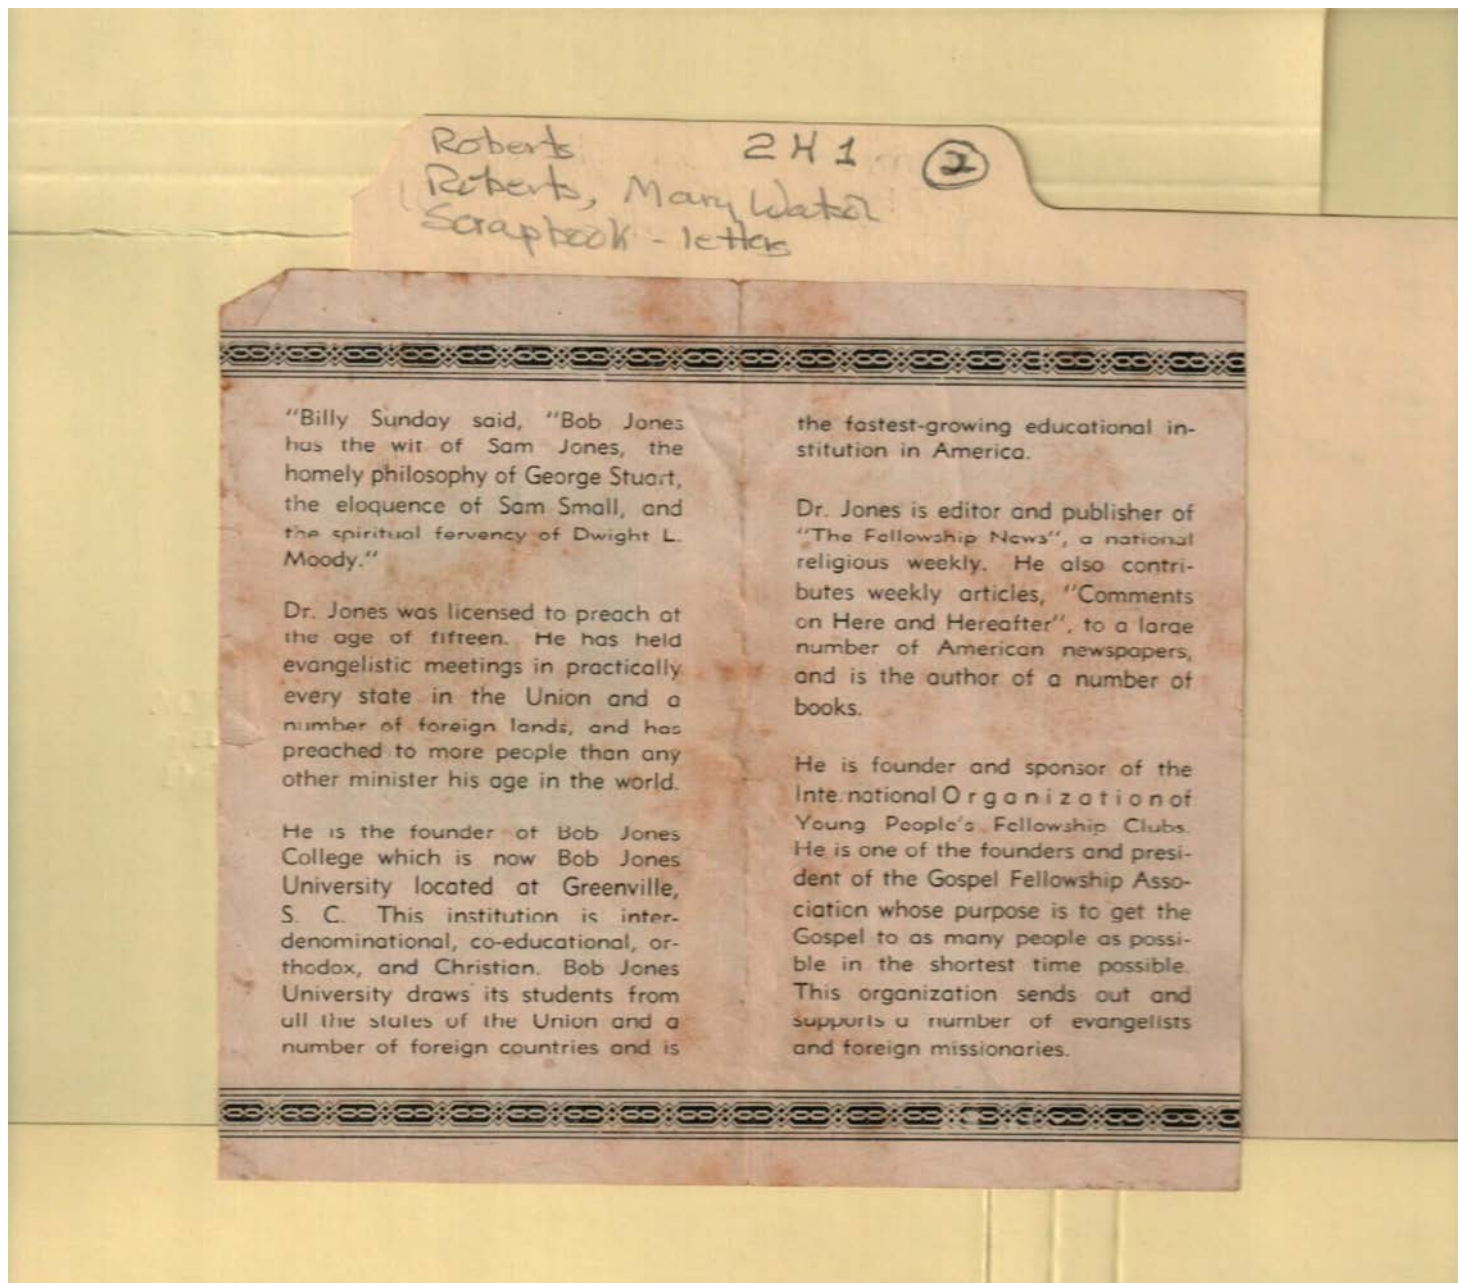 Roberts 2H1 2
Roberts, Mary Watson
Scrapbook - letters
"Billy Sunday said, "Bob Jones
has the wit of Sam Jones, the
homely philosophy of George Stuart,
the eloquence of Sam Small, and
the spiritual fervency of Dwight L.
Moody."
Dr. Jones was licensed to preach at
the age of fifteen. He has held
evangelistic meetings in practically
every state in the Union and a
number of foreign lands, and has
preached to more people than any
other minister his age in the world.
He is the founder of Bob Jones
College which is now Bob Jones
University located at Greenville,
S. C. This institution is inter-
denominational, co-educational, or-
thodox, and Christian. Bob Jones
University draws its students from
all the states of the Union and a
number of foreign countries and is
the fastest-growing educational in-
stitution in America.
Dr. Jones is editor and publisher of
"The Fellowship News", a national
religious weekly. He also contri-
butes weekly articles, "Comments
on Here and Hereafter", to a large
number of American newspapers,
and is the author of a number of
books.
He is founder and sponsor of the
International Organization of
Young People's Fellowship Clubs.
He is one of the founders and presi-
dent of the Gospel Fellowship Asso-
ciation whose purpose is to get the
Gospel to as many people as possi-
ble in the shortest time possible.
This organization sends out and
supports a number of evangelists
and foreign missionaries.